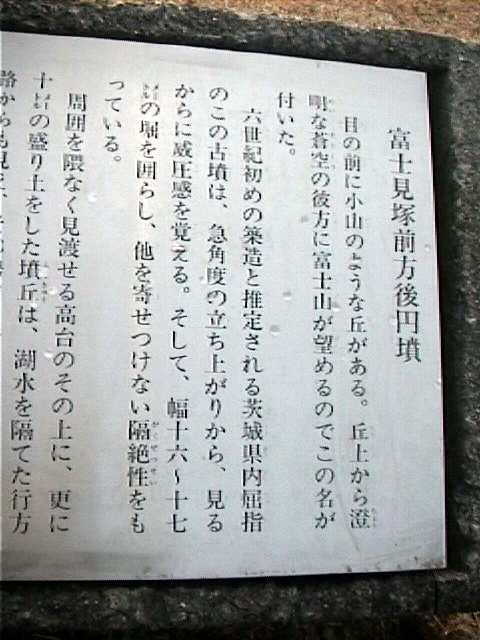 富士見塚前方後円墳
目の前に小山のような丘がある。丘上から澄
明な蒼空の彼方に富士山が望めるのでこの名が
付いた。
六世紀初めの築造と推定される茨城県内屈指
のこの古墳は、急角度の立ち上がりから、見る
からに威圧感を覚える。そして、幅十六～十七
の堀を囲らし、他を寄せつけない隔絶性をも
っている。
周囲を隈なく見渡せる高台のその上に、更に
十の盛り土をした墳丘は、湖水を隔てた行方
路からも見え